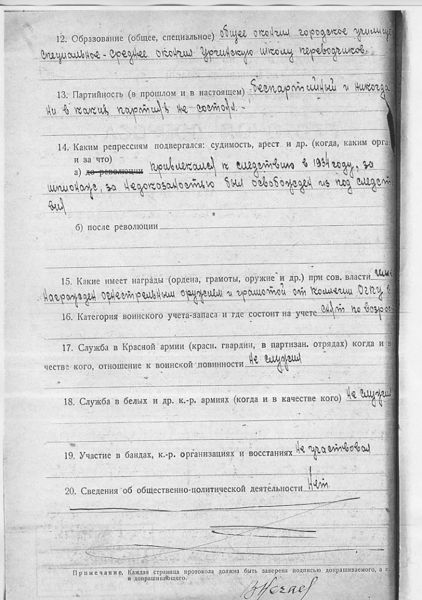 12. Образование (общее, специальное) общее окончил городское училище
специальное - среднее окончил Ургинскую школу переводчиков.
13. Партийность (в прошлом и в настоящем) беспартийный и никогда
ни в каких партиях не состоял.
14. Каким репрессиям подвергался: судимость, арест и др. (когда, каким орга
и за что)
а) до революции привлекался к следствию в 1934 году, за
шпионаж, за недоказаностью был освобожден из под следст
вия
б) после революции
15. Какие имеет награды (ордена, грамоты, оружие и др.) при сов. власти
награжден огнестрельным оружием и грамотой от коллегии ОГПУ
16. Категория воинского учета-запаса и где состоит на учете снят по возрас
17. Служба в Красной армии (красн. гвардии, в партизан. отрядах) когда и в
честве кого, отношение к воинской повинности не служил
18. Служба в белых и др. к.-р. армиях (когда и в качестве кого) не служил
19. Участие в бандах, к.-р. организациях и восстаниях не участвовал
20. Сведения об общественно-политической деятельности нет
Примечание. Каждая страница протокола должна быть заверена подписью допрашиваемого, а
и допрашивающего.